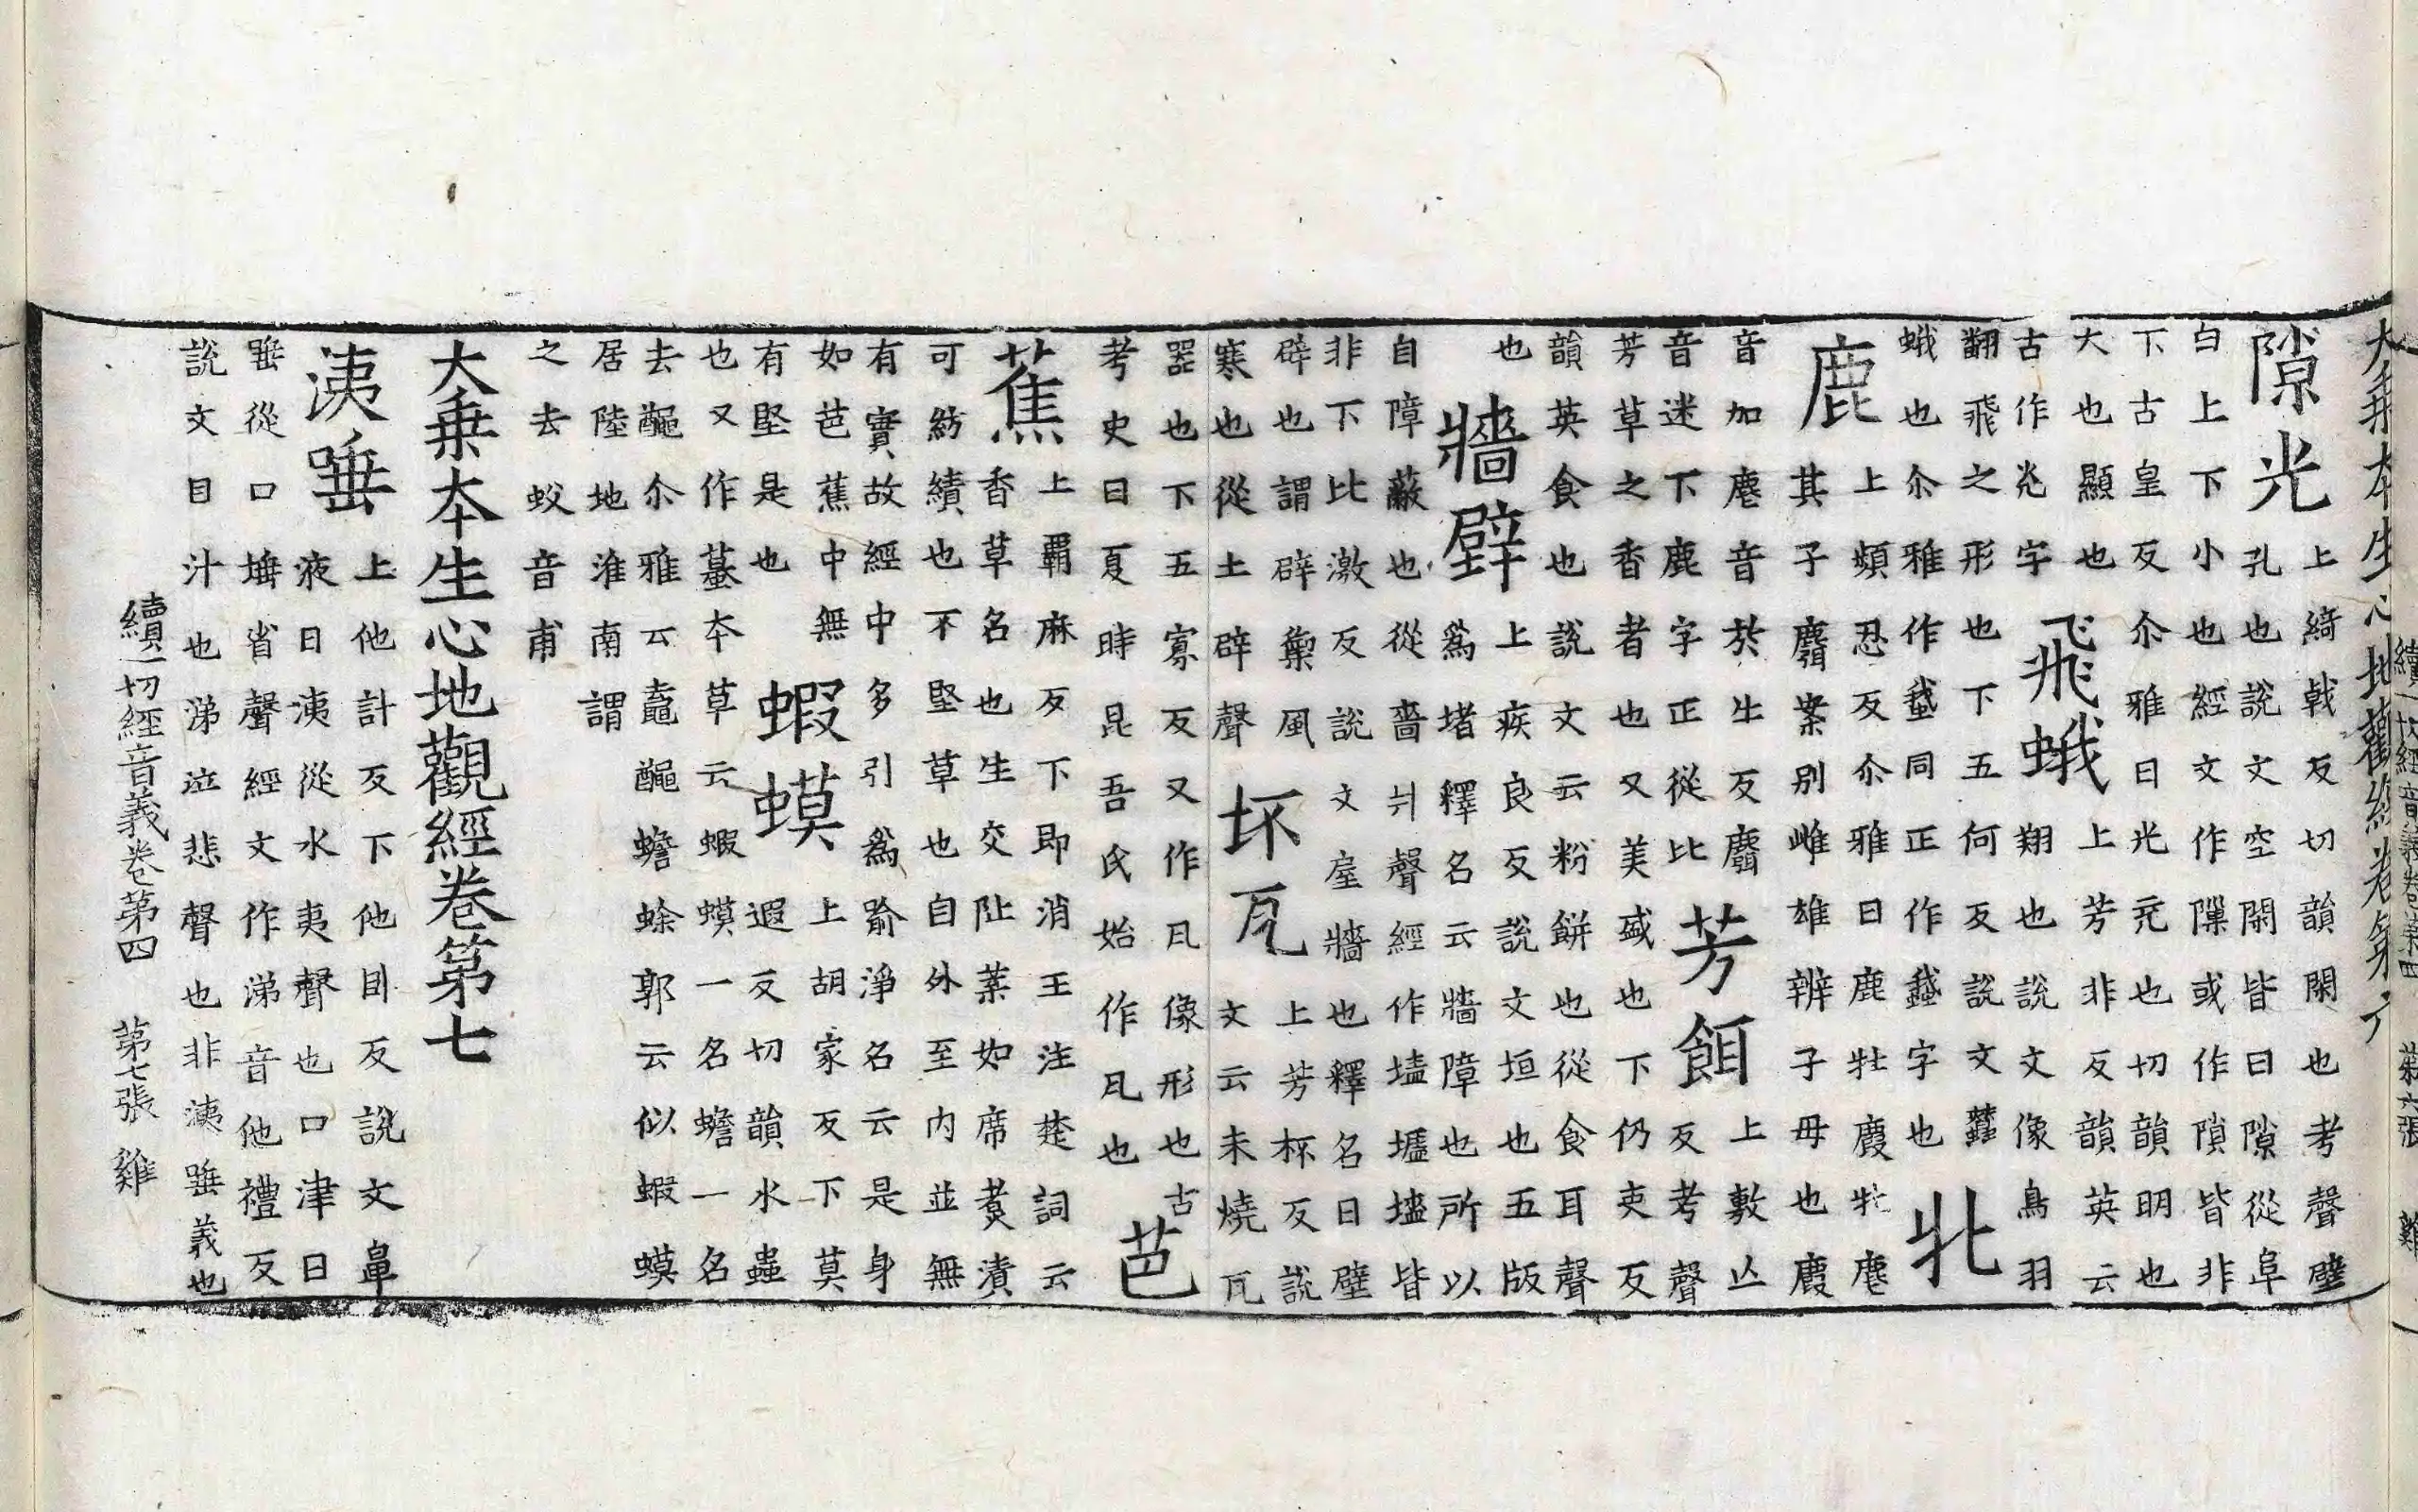 大乘本生心地觀經卷第六
續一切經音義卷第四 第六張 雞
隙光
上綺戟反切韻閑也考聲壁
孔也說文空閑皆曰隙從阜
白上下小也經文作隟或作隙皆非
下古皇反尒雅曰光充也切韻明也
大也顯也
古作灮字
飛蛾
上芳非反韻英云
翔也說文像鳥羽
翻飛之形也下五何反說文蠶
蛾也尒雅作䖸同正作䘉字也
牝
鹿
上頻忍反尒雅曰鹿牡麚牝麀
其子麛案別雌雄辨子母也麚
音加麀音於牛反麛
音迷下鹿字正從比
芳餌
上敷亡
反考聲
芳草之香者也又美盛也下仍吏反
韻英食也說文云粉餅也從食耳聲
也
牆壁
上疾良反說文垣也五版
為堵釋名云牆障也所以
自障蔽也從嗇爿聲經作墻壚壗皆
非下比激反說文屋牆也釋名曰壁
辟也謂辟禦風
寒也從土辟聲
坏瓦
上芳杯反說
文云未燒瓦
器也下五寡反又作凡像形也古
考史曰夏時昆吾氏始作瓦也
芭
蕉
上霸麻反下即消王注楚詞云
香草名也生交阯葉如席煑漬
可紡績也不堅草也自外至內並無
有實故經中多引為喻淨名云是身
如芭蕉中無
有堅是也
蝦蟆
上胡家反下莫
遐反切韻水蟲
也又作蟇本草云蝦蟆一名蟾一名
去䵷尒雅云鼁䵷蟾蜍郭云似蝦蟆
居陸地淮南謂
之去蚁音甫
大乘本生心地觀經卷第七
洟唾
上他計反下他目反說文鼻
液曰洟從水夷聲也口津曰
唾從口埵省聲經文作涕音他禮反
說文目汁也涕泣悲聲也非洟唾義也
續一切經音義卷第四 第七張 雞